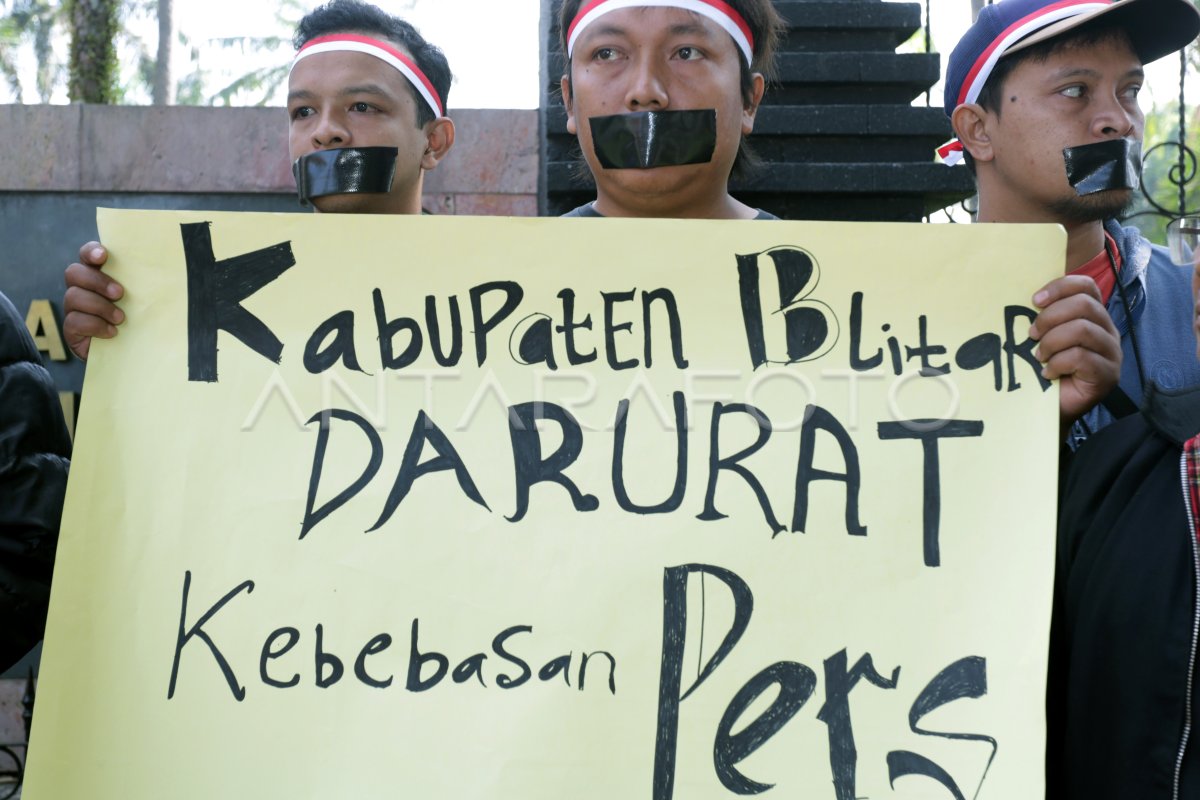 KabupatEN BLitaR
DARURAT
Kebebasan Pers
ANTARAFOTO